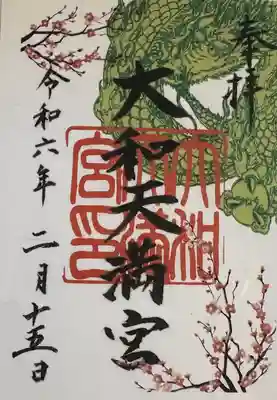 奉拝
大和天満宮
大和天満宮印
令和六年 二月十五日